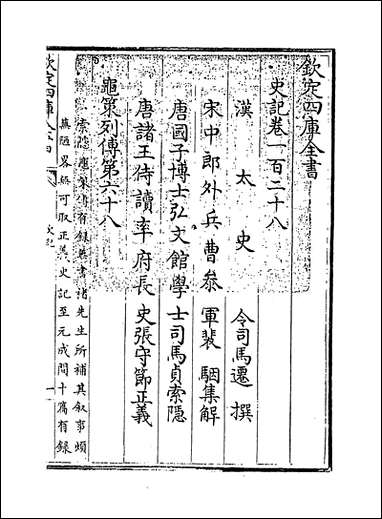 欽定四庫全書
史記卷一百二十八
漢太史令司馬遷撰
宋中郎外兵曹參軍裴駰集解
唐國子博士弘文館學士司馬貞索隱
唐諸王侍讀率府長史張守節正義
龜策列傳第六十八
索隱龜策傳有録無書褚先生所補其叙事煩
蕪陋畧無可取正義史記至元成間十篇有録
欽定四庫全書
史記
一